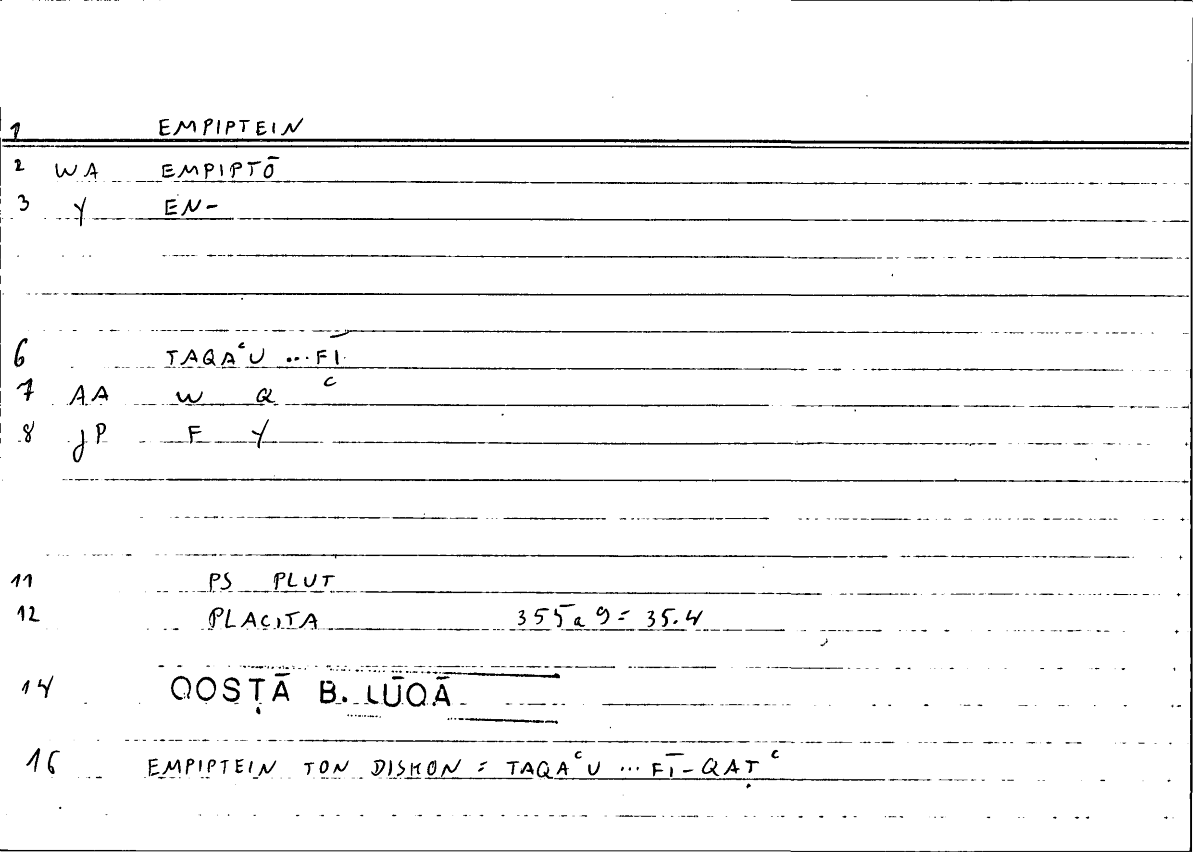 1 EMPIPTEIN
2 WA EMPIPTŌ
3 Y EN-
6 TAQAᶜU ... FĪ
7 AA W Q ᶜ
8 JP F Y
11 PS PLUT
12 PLACITA 355a 9 = 35.4
14 QOSṬĀ B. LŪQĀ
16 EMPIPTEIN TON DISKON = TAQAᶜU ... FĪ-QAṬᶜ